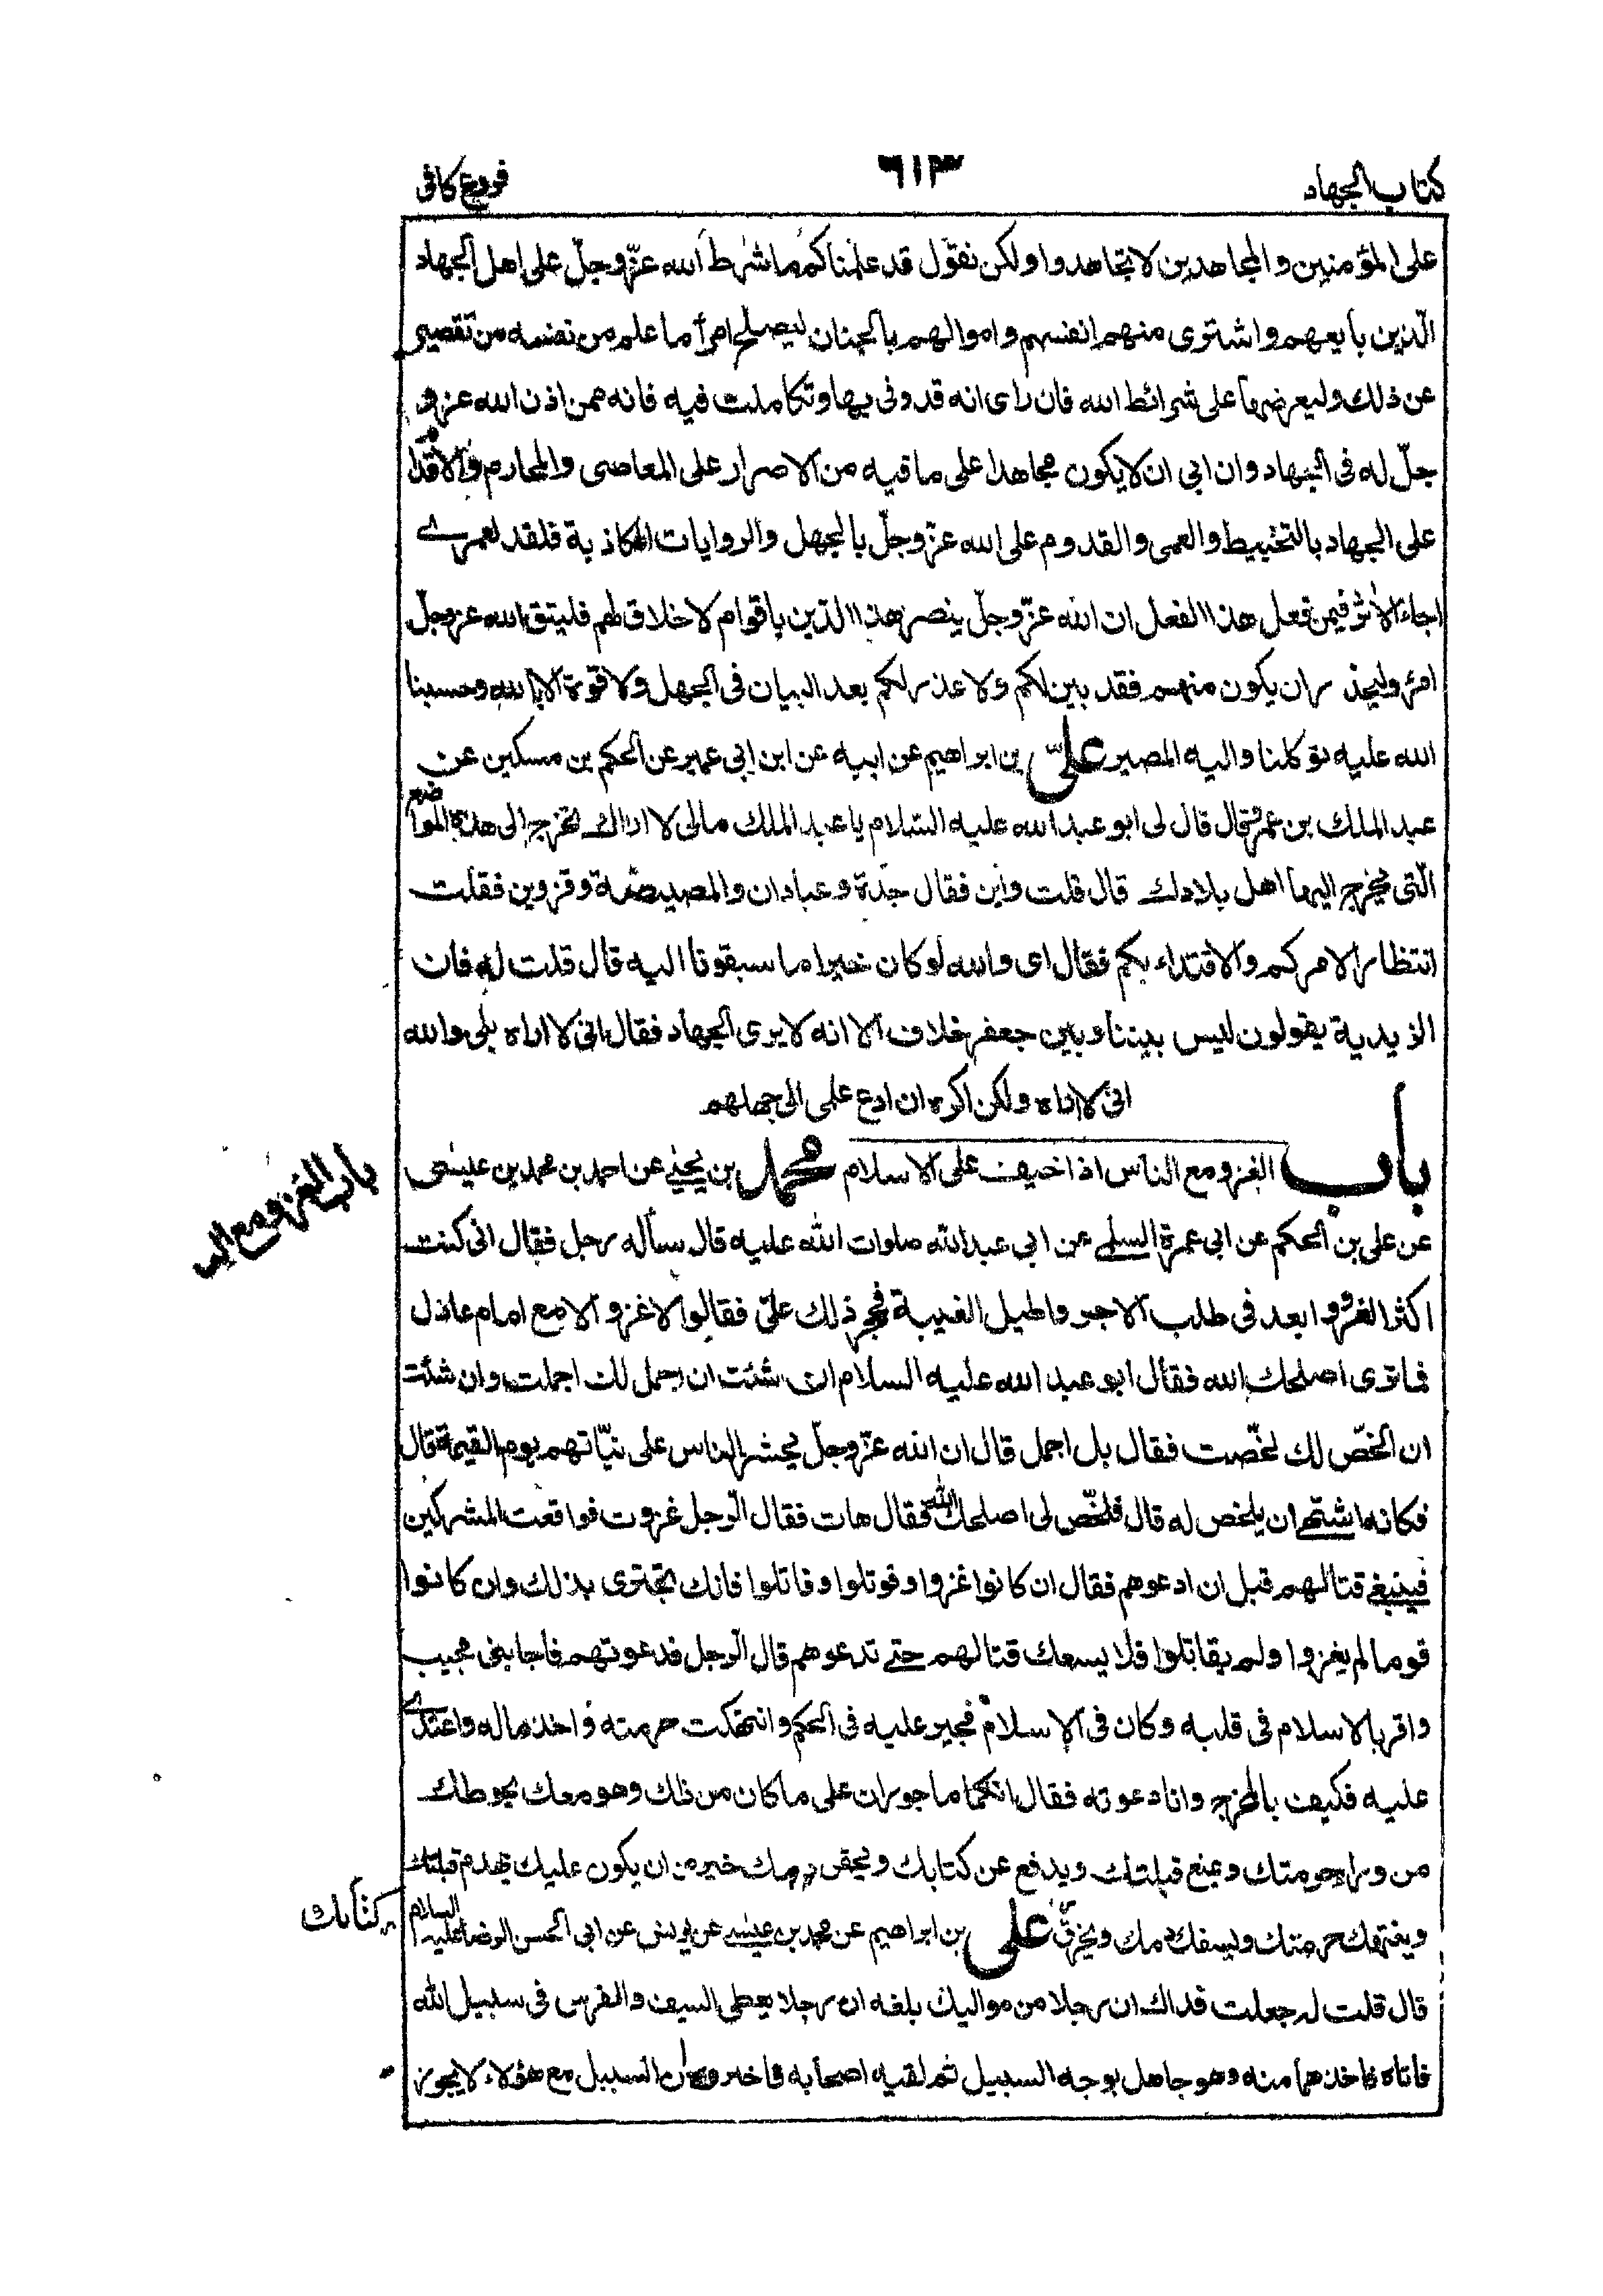 كتاب الجهاد
٦١٣
فروع كافى
على المؤمنين و المجاهدين لا تجاهدوا ولكن نقول قد علمناكم ما شرط الله عزّ وجلّ على اهل الجهاد
الّذين بايعهم واشترى منهم انفسهم واموالهم بالجنان ليصلح امرأ ما علم من نفسه من تقصير
عن ذلك وليعرضها على شرائط الله فان راى انه قد وفى بها وتكاملت فيه فانه ممن اذن الله عز و
جلّ له فى الجهاد وان ابى ان لا يكون مجاهدا على ما فيه من الاصرار على المعاصى والمحارم والاقدام
على الجهاد بالتخبيط والعمى والقدوم على الله عزّ وجلّ بالجهل والروايات الكاذبة فلقد لعمرى
جاء الاثر فيمن فعل هذا الفعل ان الله عزّ وجلّ ينصر هذا الدّين باقوام لا خلاق لهم فليتق الله عز وجلّ
امرؤ وليحذر ان يكون منهم فقد بين لكم ولا عذر لكم بعد البيان فى الجهل ولا قوة الا بالله وحسبنا
الله عليه توكلنا واليه المصير علىّ بن ابراهيم عن ابيه عن ابن ابى عمير عن الحكم بن مسكين عن
عبد الملك بن عمرو قال قال لى ابو عبد الله عليه السّلام يا عبد الملك مالى لا اراك تخرج الى هذه المواضع
الّتى يخرج اليها اهل بلادك قال قلت واين فقال جدّة وعبادان والمصيصة وقزوين فقلت
انتظارا لامركم والاقتداء بكم فقال اى والله لو كان خيرا ما سبقونا اليه قال قلت له فان
الزيدية يقولون ليس بيننا وبين جعفر خلاف الا انه لا يرى الجهاد فقال انى لا اراه بلى والله
انى لا اراه ولكن اكره ان ادع علمى الى جهلهم
باب الغزو مع الناس اذا خيف على الاسلام محمد بن يحيى عن احمد بن محمد بن عيسى
باب الغزو مع الناس
عن على بن الحكم عن ابى عمرة السلمى عن ابى عبد الله صلوات الله عليه قال سأله رجل فقال انى كنت
اكثر الغزو وابعد فى طلب الاجر واطيل الغيبة فحجر ذلك علىّ فقالوا لا غزو الا مع امام عادل
فما ترى اصلحك الله فقال ابو عبد الله عليه السلام ان شئت ان اجمل لك اجملت وان شئت
ان الخّص لك لخّصت فقال بل اجمل قال ان الله عزّ وجلّ يحشر الناس على نيّاتهم يوم القيمة قال
فكانه اشتهى ان يلخص له قال فلخّص لى اصلحك الله فقال هات فقال الرّجل غزوت فواقعت المشركين
فينبغى قتالهم قبل ان ادعوهم فقال ان كانوا غزوا وقوتلوا وقاتلوا فانك تجترى بذلك وان كانوا
قوما لم يغزوا ولم يقاتلوا فلا يسعك قتالهم حتى تدعوهم قال الرّجل فدعوتهم فاجابنى مجيب
واقر بالاسلام فى قلبه وكان فى الاسلام فجير عليه فى الحكم وانتهكت حرمته واخذ ماله واعتدى
عليه فكيف بالمخرج وانا دعوته فقال انكما ماجوران على ما كان من ذلك وهو معك يحوطك
من وراء حرمتك ويمنع قبلتك ويدفع عن كتابك ويحقن دمك خير من ان يكون عليك يهدم قبلتك
وينتهك حرمتك ويسفك دمك ويحرق علىّ بن ابراهيم عن محمد بن عيسى عن يونس عن ابى الحسن الرضا عليه السلام
كتابك
قال قلت له جعلت فداك ان رجلا من مواليك بلغه ان رجلا يعطى السيف والفرس فى سبيل الله
فاتاه فاخذهما منه وهو جاهل بوجه السبيل ثم لقيه اصحابه فاخبروه ان السبيل مع هؤلاء لا يجوز